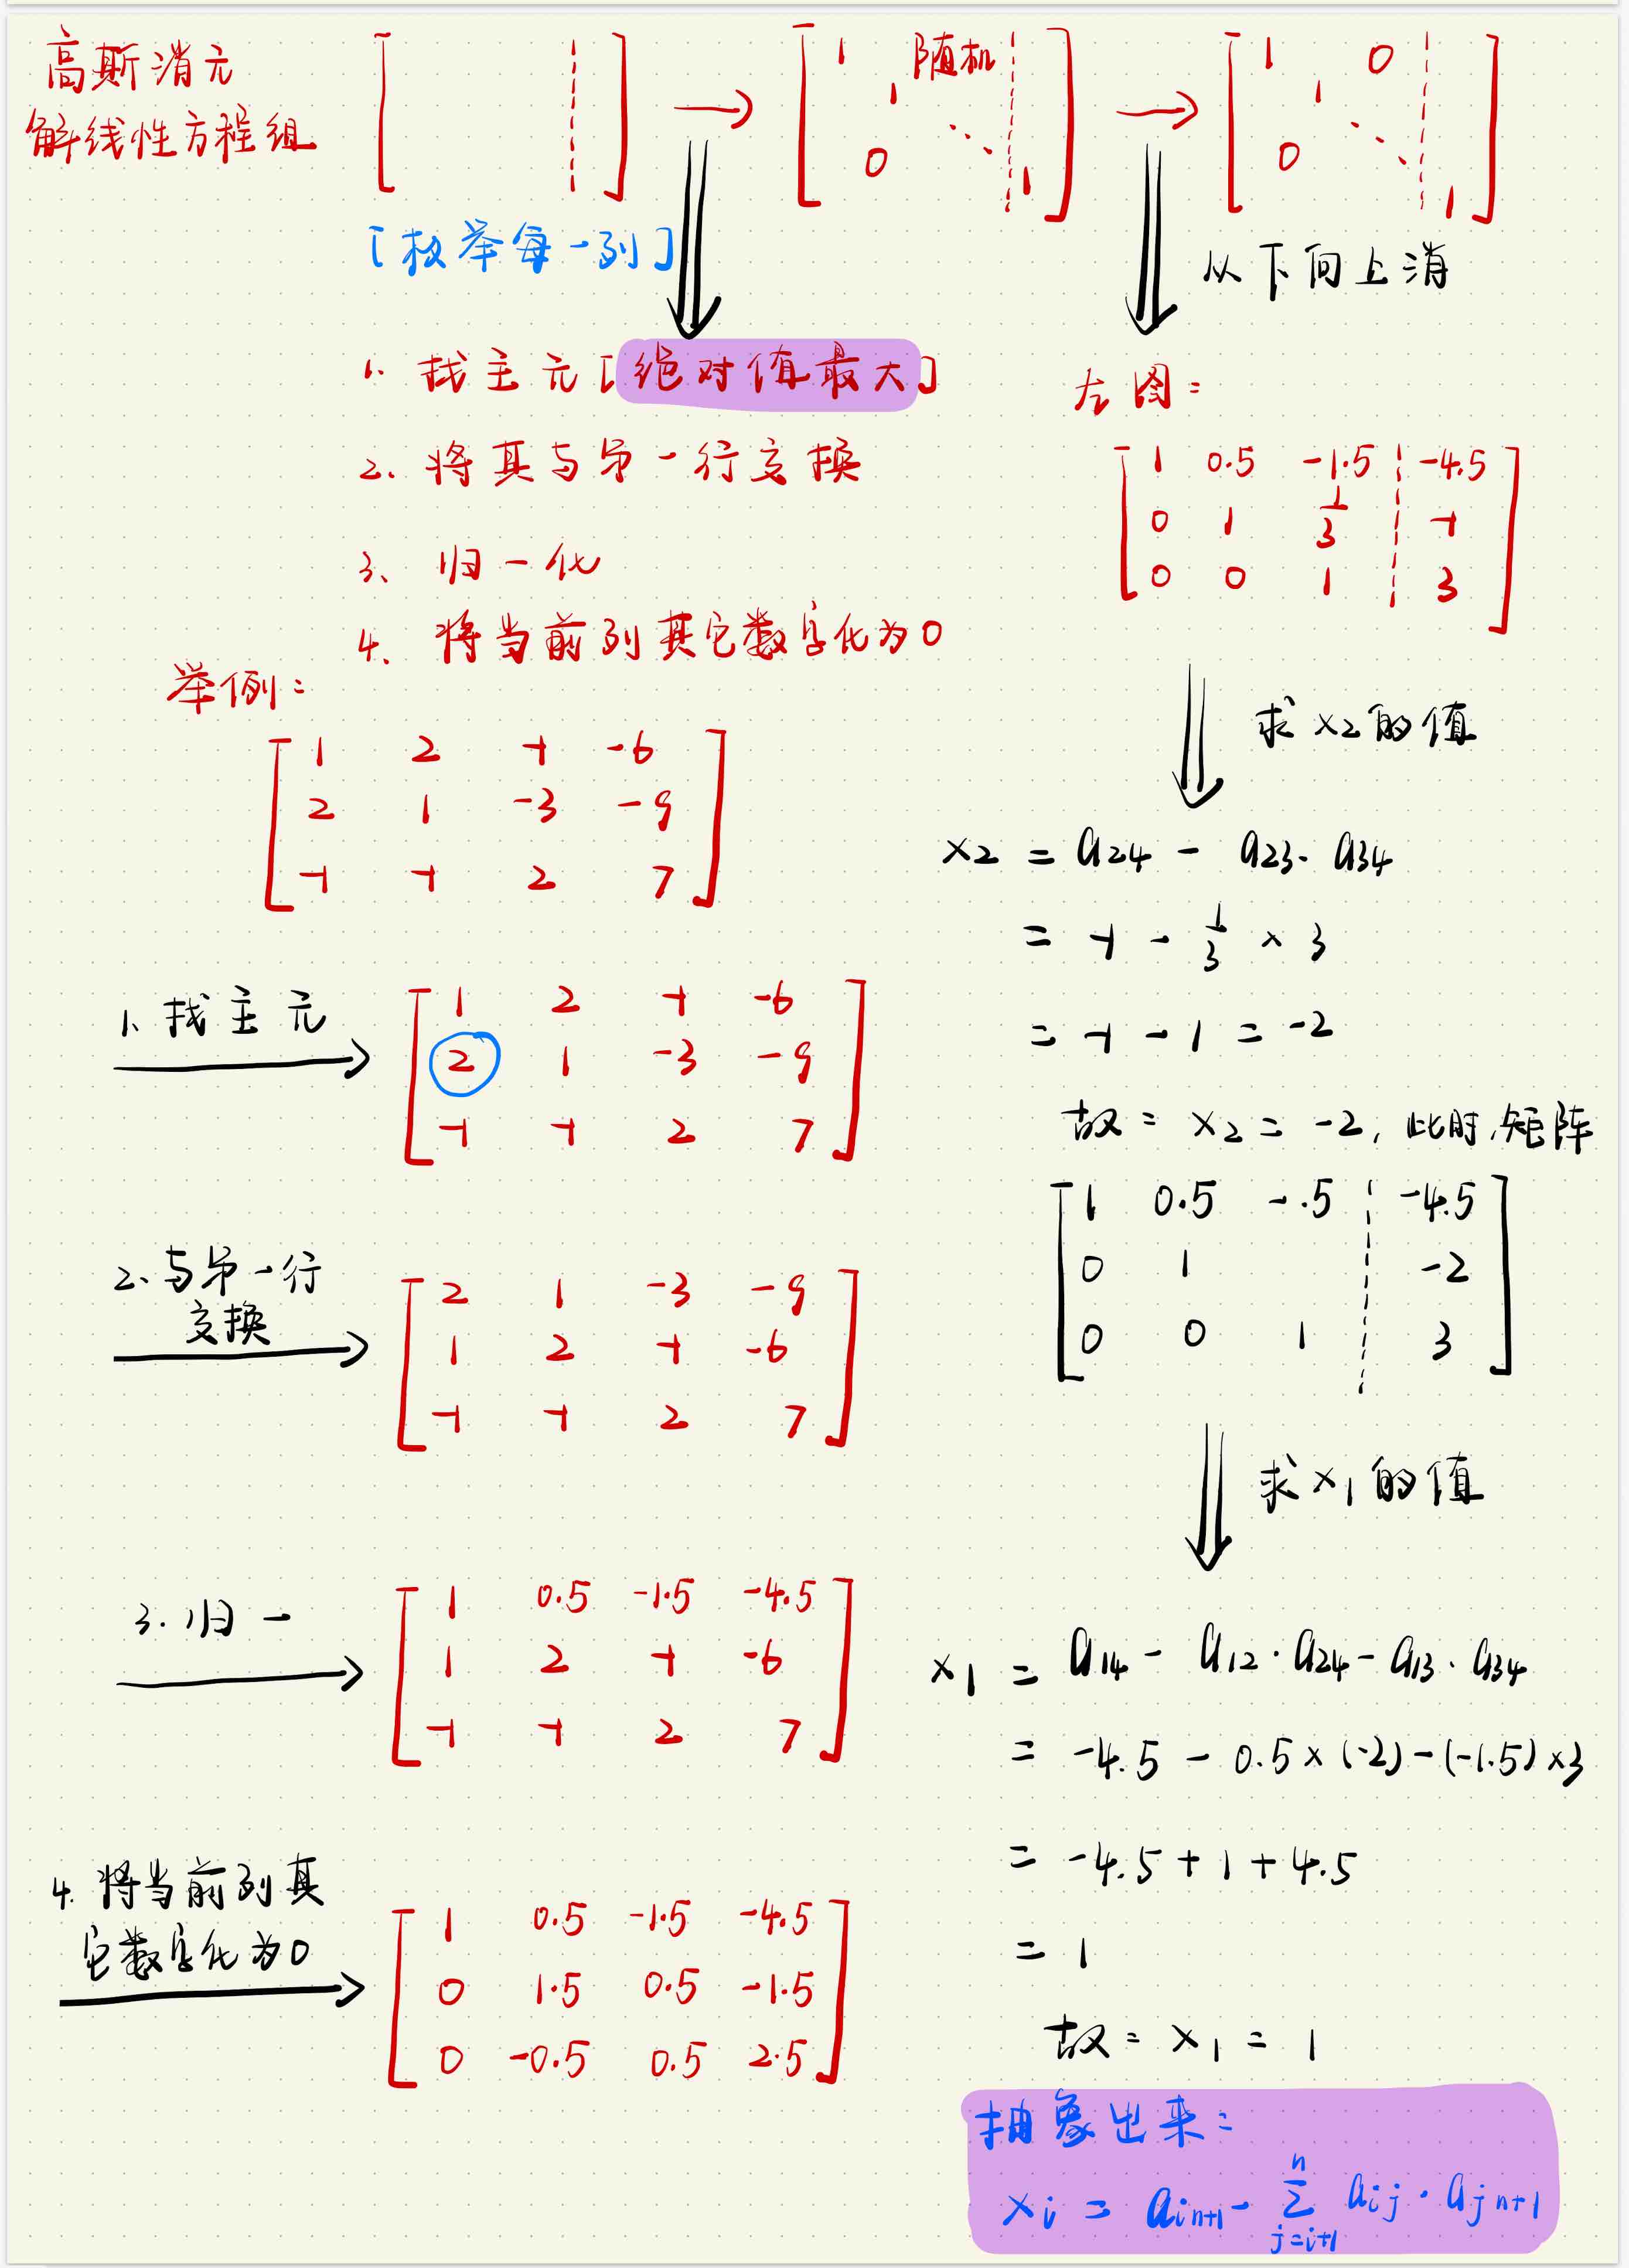 高斯消元
解线性方程组
1 随机
1
0 ⋱
1
1 0
1
0 ⋱
1
[枚举每一列]
1. 找主元[绝对值最大]
2. 将其与第一行交换
3、归一化
4、将当前列其它数字化为0
举例:
1 2 -1 -6
2 1 -3 -9
-1 -1 2 7
1、找主元
1 2 -1 -6
2 1 -3 -9
-1 -1 2 7
2、与第一行
交换
2 1 -3 -9
1 2 -1 -6
-1 -1 2 7
3. 归一
1 0.5 -1.5 -4.5
1 2 -1 -6
-1 -1 2 7
4. 将当前列其
它数字化为0
1 0.5 -1.5 -4.5
0 1.5 0.5 -1.5
0 -0.5 0.5 2.5
从下向上消
左图:
1 0.5 -1.5 -4.5
0 1 1/3 -1
0 0 1 3
求x2的值
x2 = a24 - a23·a34
= -1 - 1/3 × 3
= -1 - 1 = -2
故: x2 = -2, 此时,矩阵
1 0.5 -.5 -4.5
0 1 -2
0 0 1 3
求x1的值
x1 = a14 - a12·a24 - a13·a34
= -4.5 - 0.5×(-2) - (-1.5)×3
= -4.5 + 1 + 4.5
= 1
故: x1 = 1
抽象出来:
xi = ain+1 - Σ(j=i+1→n) aij·ajn+1